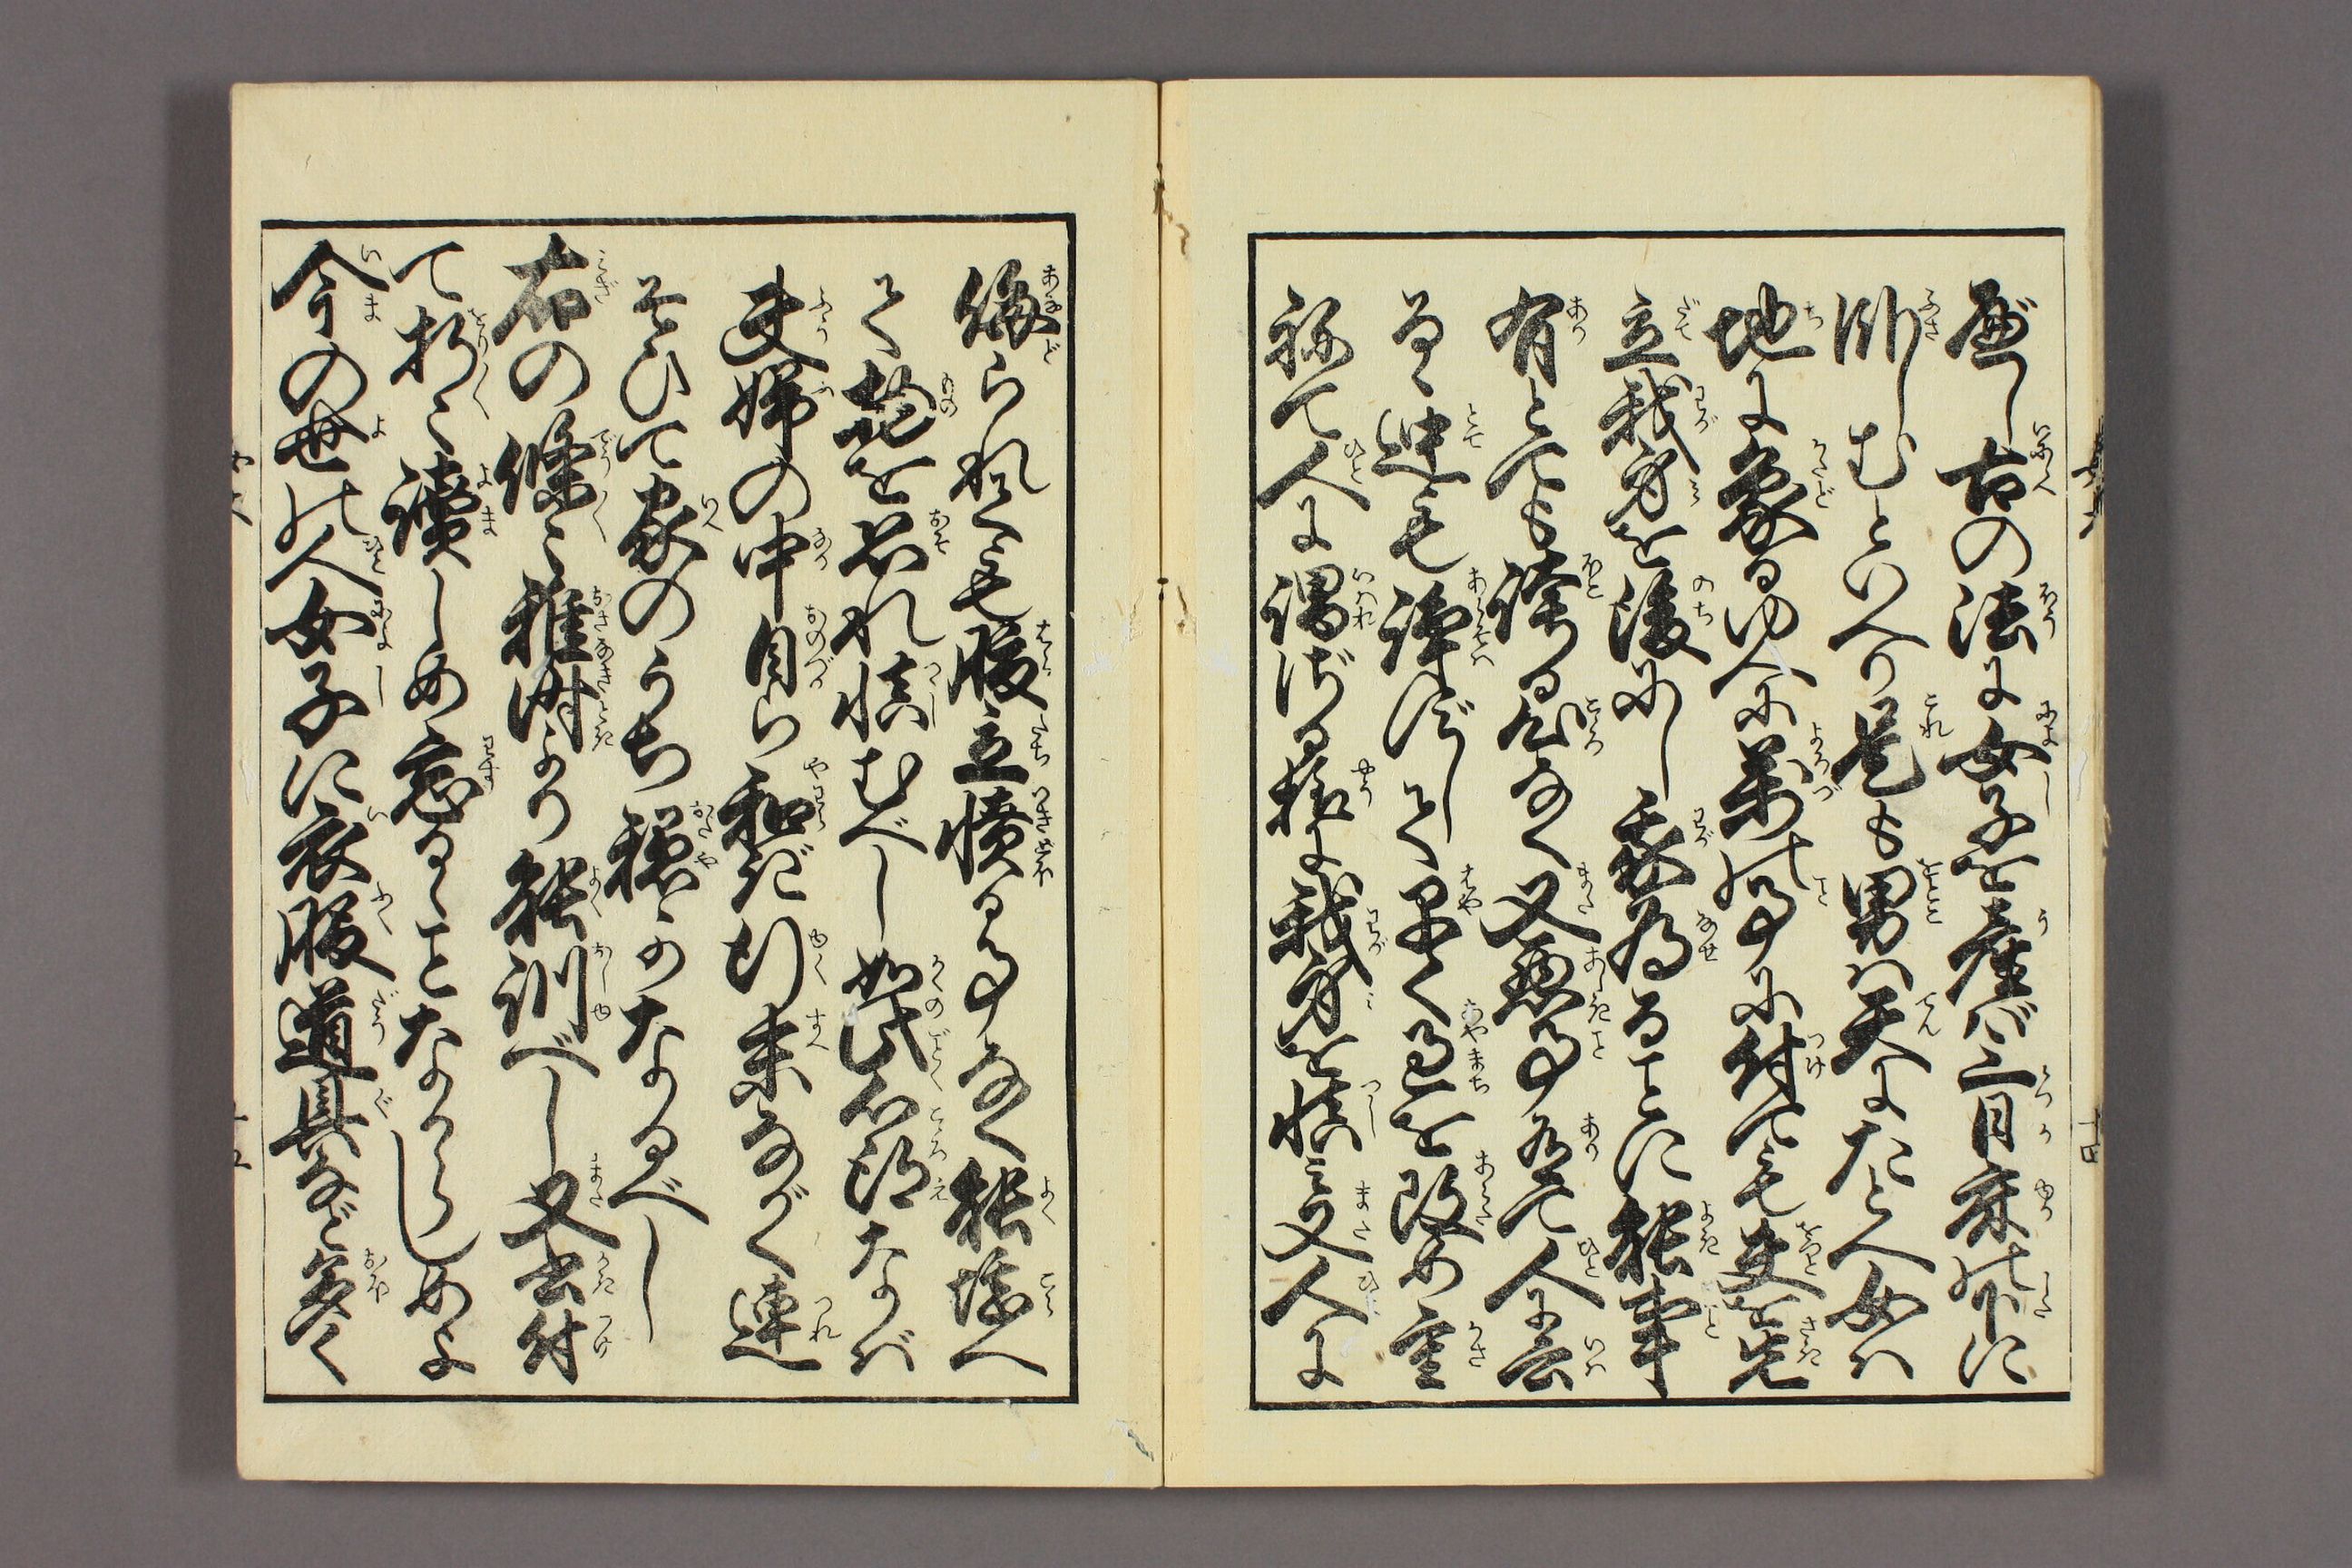 べし古の法に女子を産ば三日床の下に
臥しむといへり是も男は天にたとへ女は
地に象るゆへに万の事に付ても夫を先
立我身を後にし我為ることに能事
有とても誇る心なく又悪事有て人に云
るゝ迚も諍はずして早く過を改め重
ねて人に謂れざる様に我身を慎み又人に
侮られても腹立憤る事なく能堪へ
て物を恐れ慎むべし如此心得なば
夫婦の中自ら和ぎ行末ながく連
そひて家のうち穏かなるべし
右の條々稚時より能訓べし又書付
て折々読しめ忘るゝことなからしめよ
今の世の人女子に衣服道具など多く